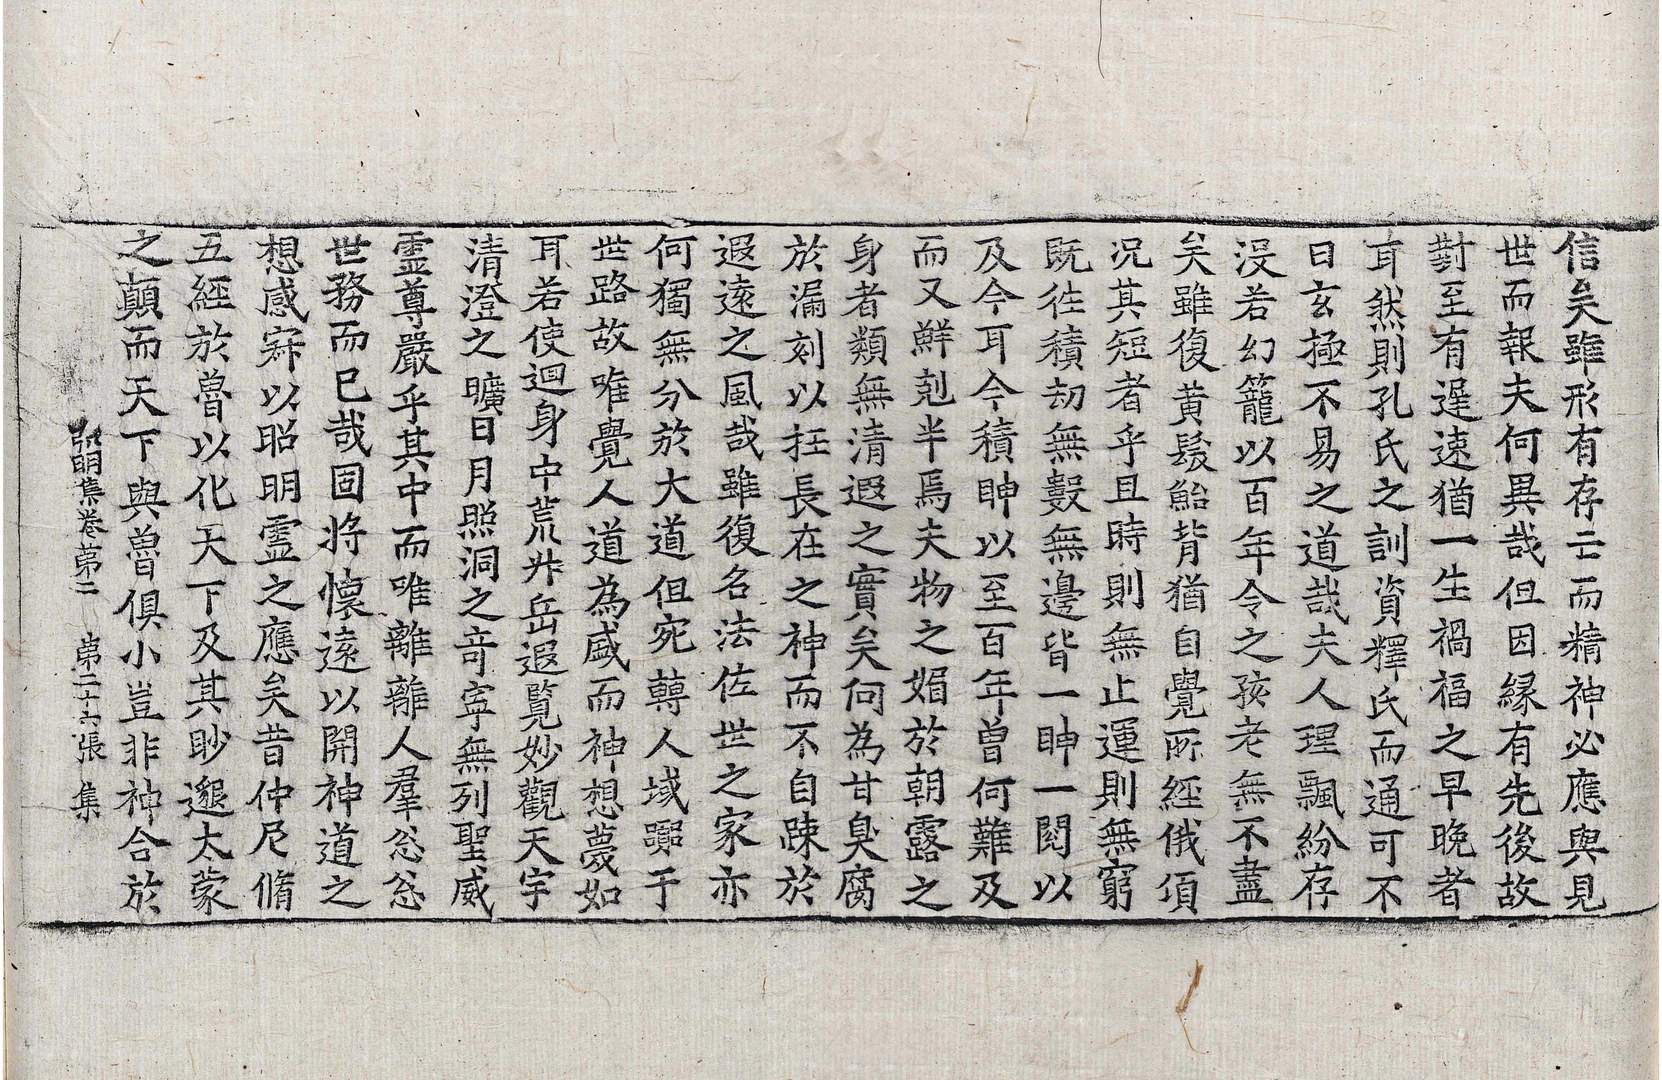 信矣雖形有存亡而精神必應與見
世而報夫何異哉但因縁有先後故
對至有遲速猶一生禍福之早晚者
耳然則孔氏之訓資釋氏而通可不
曰玄極不易之道哉夫人理飄紛存
没若幻籠以百年令之孩老無不盡
矣雖復黃髮鮐背猶自覺所經俄頃
况其短者乎且時則無止運則無窮
既徃積劫無數無邊皆一眒一閱以
及今耳今積眒以至百年曾何難及
而又鮮剋半焉夫物之媚於朝露之
身者類無清遐之實矣何為甘臭腐
於漏刻以抂長在之神而不自踈於
遐逺之風哉雖復名法佐世之家亦
何獨無分於大道但宛轉人域嚻于
世路故唯覺人道為盛而神想蔑如
耳若使迴身中荒升岳遐覽妙觀天宇
清澄之曠日月照洞之竒寧無列聖威
霊尊嚴乎其中而唯離離人羣忩忩
世務而已哉固將懷遠以開神道之
想感寂以昭明霊之應矣昔仲尼脩
五經於魯以化天下及其眇邈太蒙
之顛而天下與魯俱小豈非神合於
弘明集卷第二　第二十六張　集